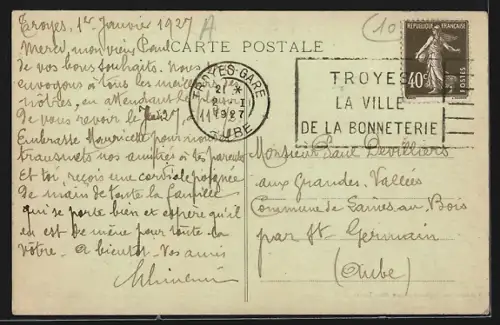 Troyes, 1er Janvier 1927
Merci, mon vieux Paul
de vos bons souhaits. Nous
envoyons à tous les meilleurs
nôtres, en attendant le plaisir
de vous revoir le
Embrasse Mauricette pour nous
transmets nos amitiés à tes parents
Et toi, reçois une cordiale poignée
de main de toute la famille
qui se porte bien et espère qu'il
en est de même pour toute la
vôtre. A bientôt. Vos amis
A
10
CARTE POSTALE
TROYES-GARE
21 *
2 - 1
1927
AUBE
TROYES
LA VILLE
DE LA BONNETERIE
40c
POSTES
Monsieur Paul Devilliers
aux Grandes-Vallées
Commune de Laines-au-Bois
par St Germain
(Aube)